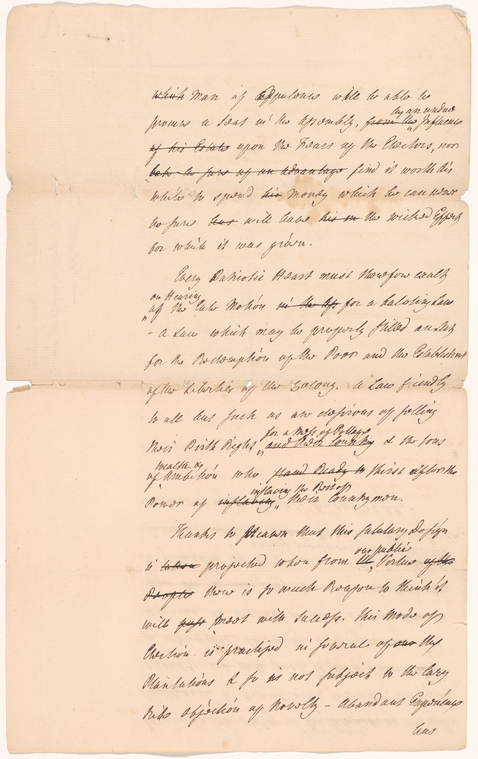 which Man of Oppulence will be able to
by an undue
procure a Seat in the Assembly, from the Influence
of his Estate upon the Fears of the Electors, nor
but be sure of an advantage find it worth his
while to spend his Money which he can never
be sure will have his in the wicked Effect
for which it was given.
Every Patriotic Heart must therefore exult
on Hearing
of the late Motion in the for a Balloting Law
- a Law which may be properly stiled an Act
for the Redemption of the Poor and the Establishment
of the Liberties of the Colony. A Law friendly
to all but such as are desirous of selling
for a Mess of Pottage
their Birth Right and their Country & the Sons
wealth or
of Ambition who stand Ready to thirst after the
inslaving the Rest of
Power of inslaving their Countrymen.
Thanks to Heaven that this salutary Design
our public
is taken projected when from the Virtue of the
People there is so much Reason to think it
will pass meet with Success. This Mode of
Election is practised in several of our the
Plantations & so is not subject to the
objection of Novelty - Abundant Experience
has